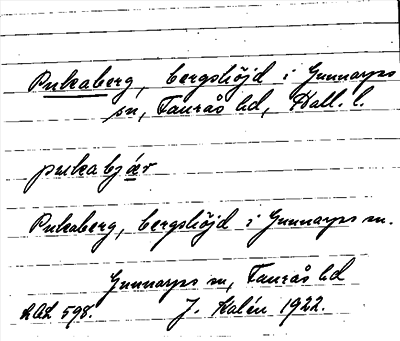 Pukaberg, bergshöjd i Gunnarps
sn, Faurås hd, Hall. l.
pukabjär
Pukaberg, bergshöjd i Gunnarps sn.
Gunnarps sn, Faurås hd
598. J. Kalén 1922.